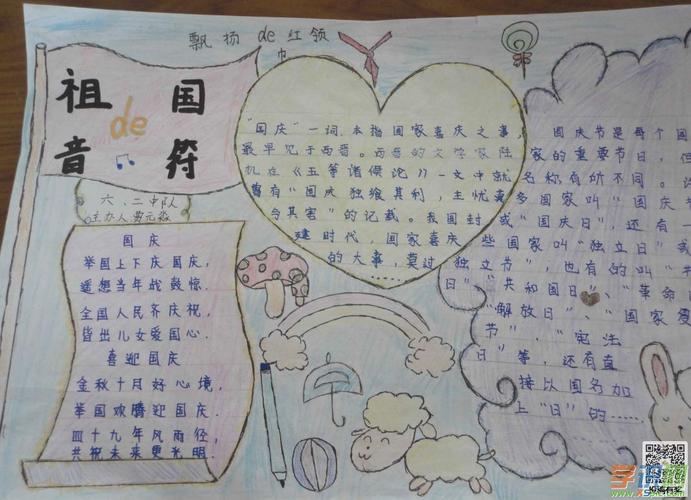 飘扬de红领
巾
祖国
de
音符
六、二中队
主办人:
国庆
举国上下庆国庆,
遥想当年战鼓惊.
全国人民齐庆祝,
皆出儿女爱国心.
喜迎国庆
金秋十月好心境,
举国欢腾迎国庆.
四十九年风雨径,
共祝未来更光明.
“国庆”一词.本指国家喜庆之事,
最早见于西晋。西晋的文学家陆
机在《五等诸侯论》一文中就
曾有“国庆独飨其利,主忧莫
与其害”的记载。我国封
建时代,国家喜庆
的大事,莫过
国庆节是每个国
家的重要节日,但
名称有所不同。许
多国家叫“国庆
或“国庆日”,还有一
些国家叫“独立日”或
“独立节”,也有的叫“
日”“共和国日”、“革命
“解放日”、“国家复
节”、“宪法
日”等,还有直
接以国名加
上“日”的……